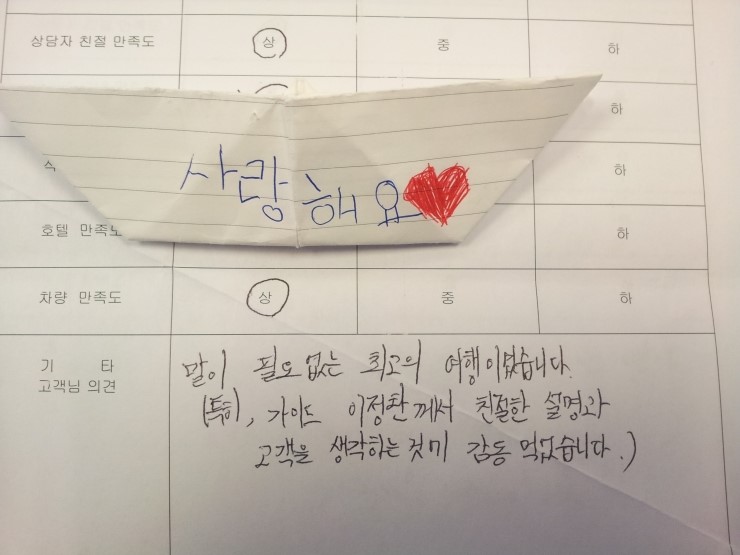 상담자 친절 만족도 상 중 하
하
사랑해요
식 하
호텔 만족도 하
차량 만족도 상 중 하
기 타
고객님 의견
말이 필요없는 최고의 여행이였습니다.
(특히, 가이드 이정찬께서 친절한 설명과
고객을 생각하는것이 감동 먹었습니다.)